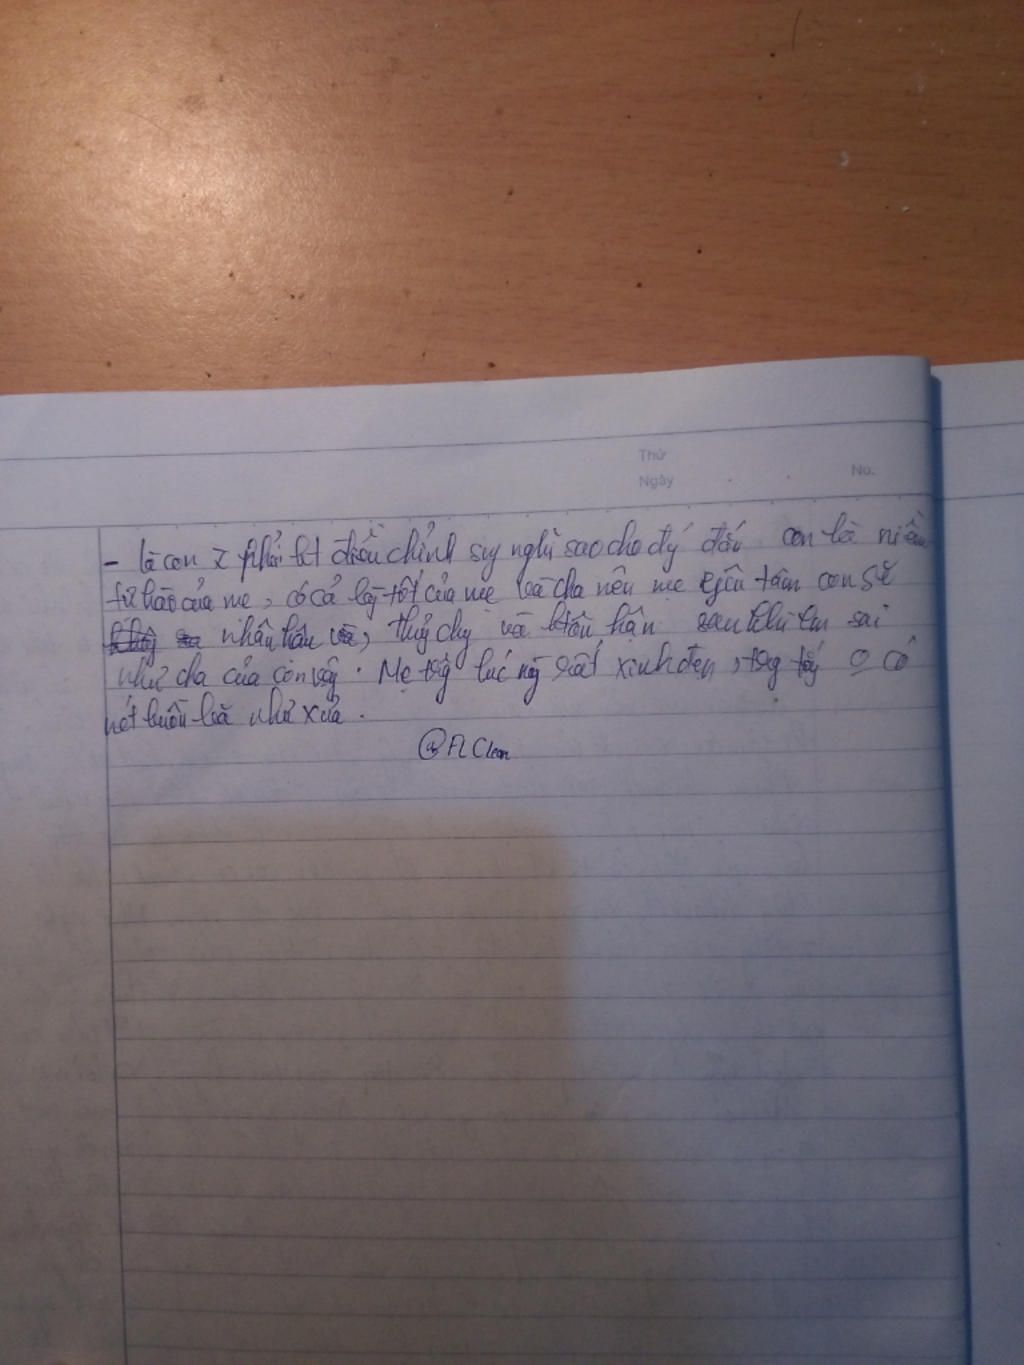 Thứ
Ngày No.
- là con phải bt điều chỉnh suy nghĩ sao cho đú đắn con là niềm
tự hào của mẹ, có cả tốt của mẹ và cha nên mẹ tâm con sẽ
nhân hậu và, thủy chg và hận sau khi sai
như cha của con vậy. Mẹ trg lúc rất xinh đẹp, trg có
nét buồn bã như xưa.
@FLClean